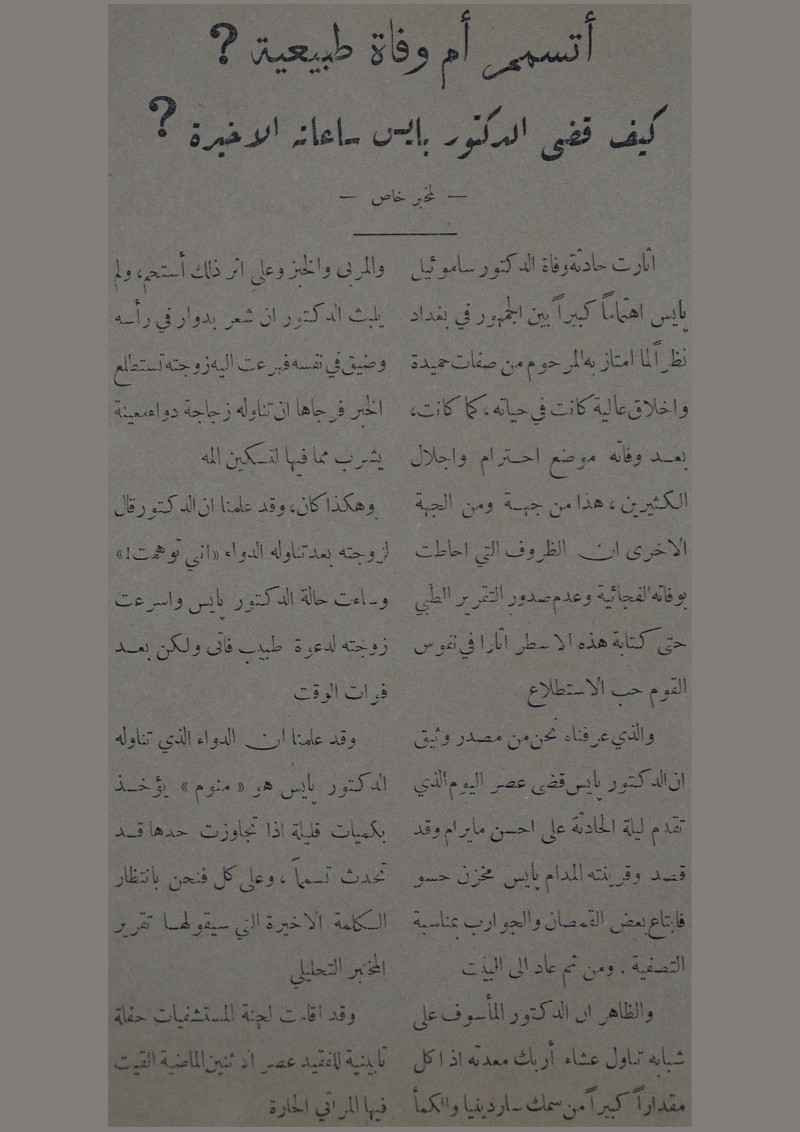 أتسمم أم وفاة طبيعية ؟
كيف قضى الدكتور بايس ساعاته الاخيرة ؟
— لمخبر خاص —
اثارت حادثة وفاة الدكتور ساموئيل
پايس اهتماماً كبيراً بين الجمهور في بغداد
نظراً لما امتاز به المرحوم من صفات حميدة
واخلاق عالية كانت في حياته ، كما كانت ،
بعد وفاته موضع احترام واجلال
الكثيرين ، هذا من جهة ومن الجهة
الاخرى ان الظروف التي احاطت
بوفاته الفجائية وعدم صدور التقرير الطبي
حتى كتابة هذه الاسطر اثارا في نفوس
القوم حب الاستطلاع
والذي عرفناه نحن من مصدر وثيق
ان الدكتور پايس قضى عصر اليوم الذي
تقدم ليلة الحادثة على احسن مايرام وقد
قصد وقرينته المدام پايس مخزن حسو
فابتاع بعض القمصان والجوارب بمناسبة
التصفية . ومن ثم عاد الى البيت
والظاهر ان الدكتور المأسوف على
شبابه تناول عشاء أربك معدته اذ اكل
مقداراً كبيراً من سمك ساردينيا والكمأ
والمربى والخبز وعلى اثر ذلك أستحم ، ولم
يلبث الدكتور ان شعر بدوار في رأسه
وضيق في نفسه فهرعت اليه زوجته تستطلع
الخبر فرجاها ان تناوله زجاجة دواء معينة
يشرب مما فيها لتسكين المه
وهكذا كان ، وقد علمنا ان الدكتور قال
لزوجته بعد تناوله الدواء «اني توهمت !»
وساءت حالة الدكتور پايس واسرعت
زوجته لدعوة طبيب فاتى ولكن بعد
فوات الوقت
وقد علمنا ان الدواء الذي تناوله
الدكتور پايس هو « منوم » يؤخذ
بكميات قليلة اذا تجاوزت حدها قد
تحدث تسمماً ، وعلى كل فنحن بانتظار
الكلمة الاخيرة التي سيقولها تقرير
المختبر التحليلي
وقد اقامت لجنة المستشفيات حفلة
تابينية للفقيد عصر الاثنين الماضية القيت
فيها المراثي الحارة